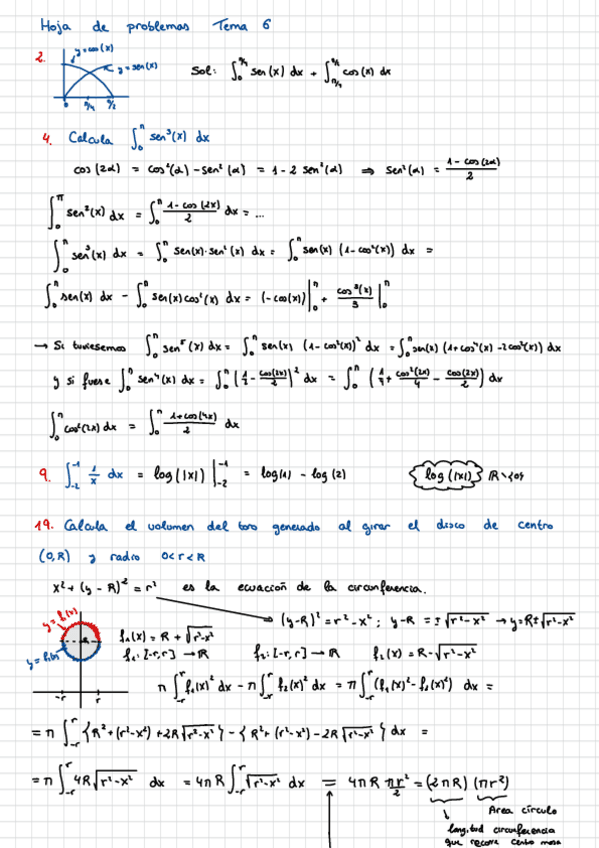 Hoja de problemas Tema 6
2.
y=cos(x)
y=sen(x)
0 π/4 π/2
Sol: ∫₀^{π/4} sen(x) dx + ∫_{π/4}^{π/2} cos(x) dx
4. Calcula ∫₀^π sen³(x) dx
cos(2α) = cos²(α) - sen²(α) = 1 - 2 sen²(α) ⇒ sen²(α) = (1 - cos(2α))/2
∫₀^π sen²(x) dx = ∫₀^π (1 - cos(2x))/2 dx = ...
∫₀^π sen³(x) dx = ∫₀^π sen(x)·sen²(x) dx = ∫₀^π sen(x) (1 - cos²(x)) dx =
∫₀^π sen(x) dx - ∫₀^π sen(x) cos²(x) dx = (-cos(x))|₀^π + cos³(x)/3 |₀^π
→ Si tuviesemos ∫₀^π sen⁵(x) dx = ∫₀^π sen(x) (1 - cos²(x))² dx = ∫₀^π sen(x) (1 + cos⁴(x) - 2cos²(x)) dx
y si fuese ∫₀^π sen⁴(x) dx = ∫₀^π (1/2 - cos(2x)/2)² dx = ∫₀^π (1/4 + cos²(2x)/4 - cos(2x)/2) dx
∫₀^π cos²(2x) dx = ∫₀^π (1 + cos(4x))/2 dx
9. ∫_{-2}^{-1} 1/x dx = log(|x|) |_{-2}^{-1} = log(1) - log(2)
log(|x|) ℝ∖{0}
19. Calcula el volumen del toro generado al girar el disco de centro
(0,R) y radio 0<r<R
x² + (y - R)² = r² es la ecuación de la circunferencia.
⇒ (y-R)² = r² - x² ; y-R = ±√(r² - x²) → y = R ± √(r² - x²)
y = f₁(x)
y = f₂(x)
R
-r r
f₁(x) = R + √(r² - x²)
f₁: [-r, r] → ℝ f₂: [-r, r] → ℝ f₂(x) = R - √(r² - x²)
π ∫_{-r}^{r} f₁(x)² dx - π ∫_{-r}^{r} f₂(x)² dx = π ∫_{-r}^{r} (f₁(x)² - f₂(x)²) dx =
= π ∫_{-r}^{r} {R² + (r² - x²) + 2R √(r² - x²)} - {R² + (r² - x²) - 2R √(r² - x²)} dx =
= π ∫_{-r}^{r} 4R √(r² - x²) dx = 4πR ∫_{-r}^{r} √(r² - x²) dx = 4πR πr²/2 = (2πR) (πr²)
Area círculo
longitud circunferencia
que recorre centro masa